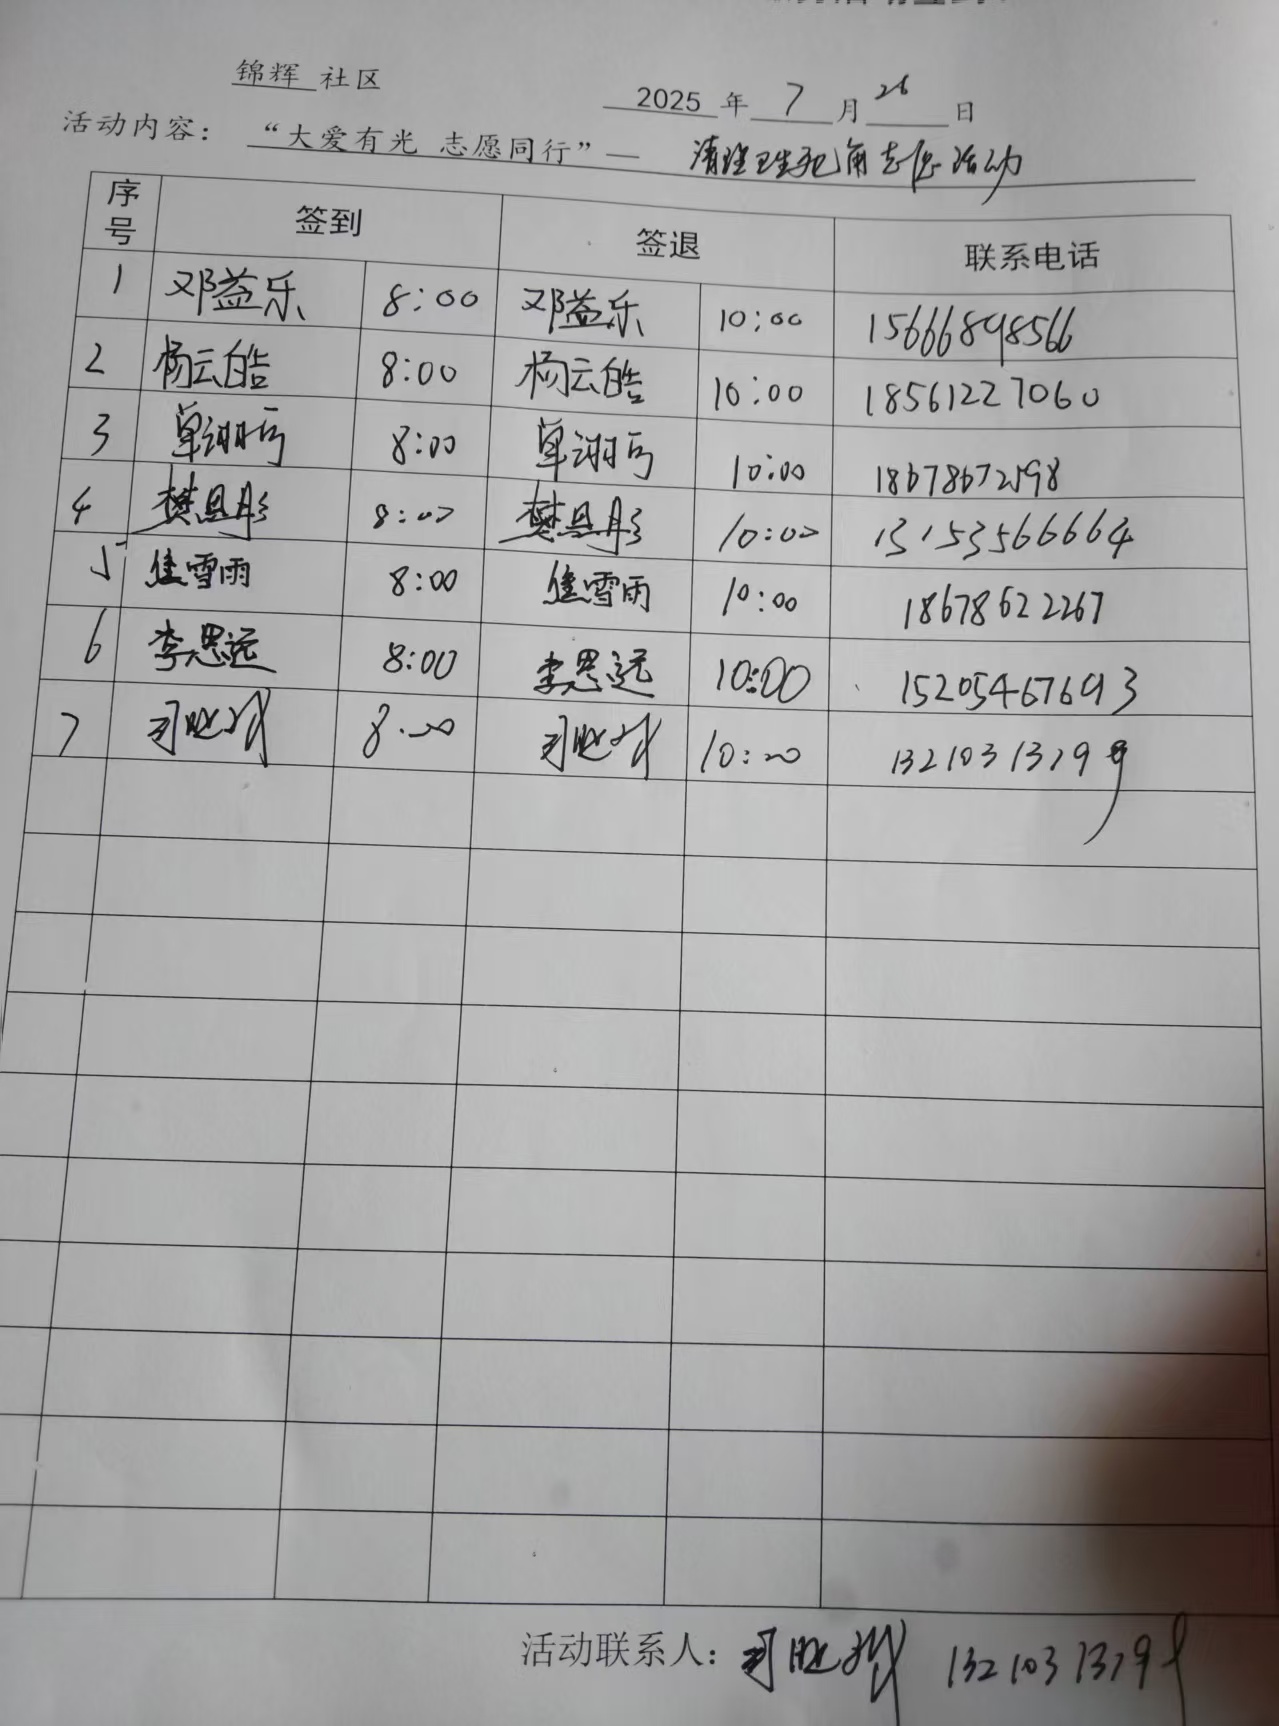 锦辉 社区
2025 年 7 月 26 日
活动内容: “大爱有光 志愿同行”— 清理卫生死角志愿活动
序号 签到 签退 联系电话
1 邓益乐 8:00 邓益乐 10:00 15666898566
2 杨云皓 8:00 杨云皓 10:00 18561227060
3 8:00 10:00 18678672598
4 樊恩彤 8:00 樊恩彤 10:00 13153566664
5 焦雪雨 8:00 焦雪雨 10:00 18678622267
6 李思远 8:00 李思远 10:00 15205467693
7 8:00 10:00 13210313799
活动联系人: 13210313799